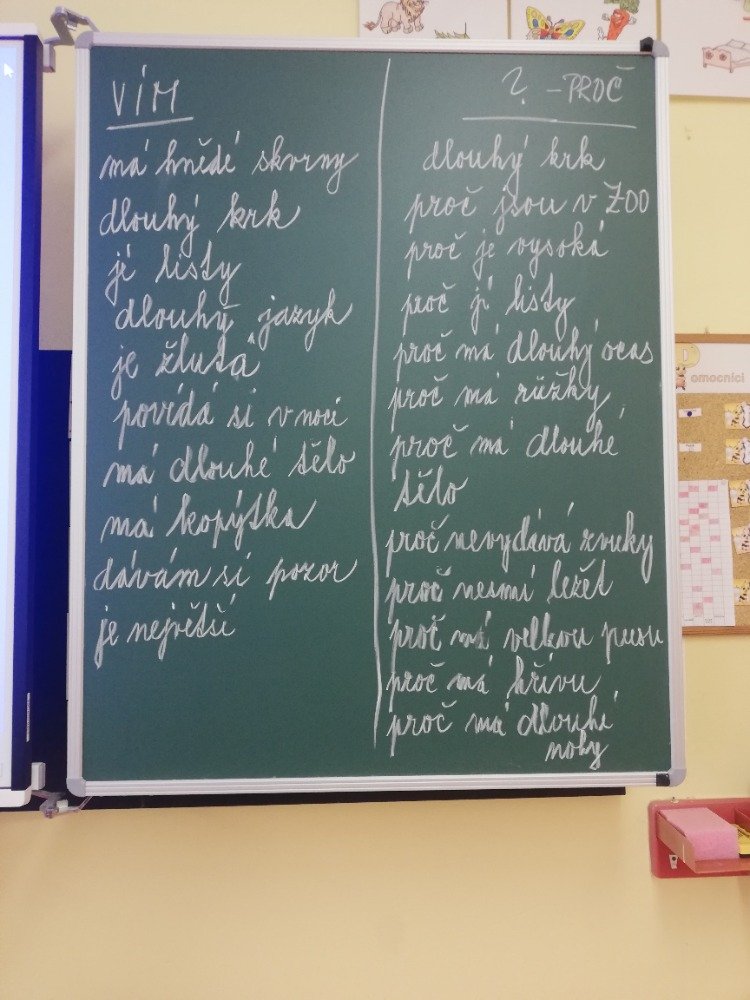 VÍM
má hnědé skvrny
dlouhý krk
jí listy
dlouhý jazyk
je žlutá
povídá si v noci
má dlouhé tělo
má kopýtka
dávám si pozor
je největší
? - PROČ
dlouhý krk
proč jsou v ZOO
proč je vysoká
proč jí listy
proč má dlouhý ocas
proč má růžky
proč má dlouhé
tělo
proč nevydává zvuky
proč nesmí ležet
proč má velkou pusu
proč má hřívu
proč má dlouhé
nohy
Pomocníci